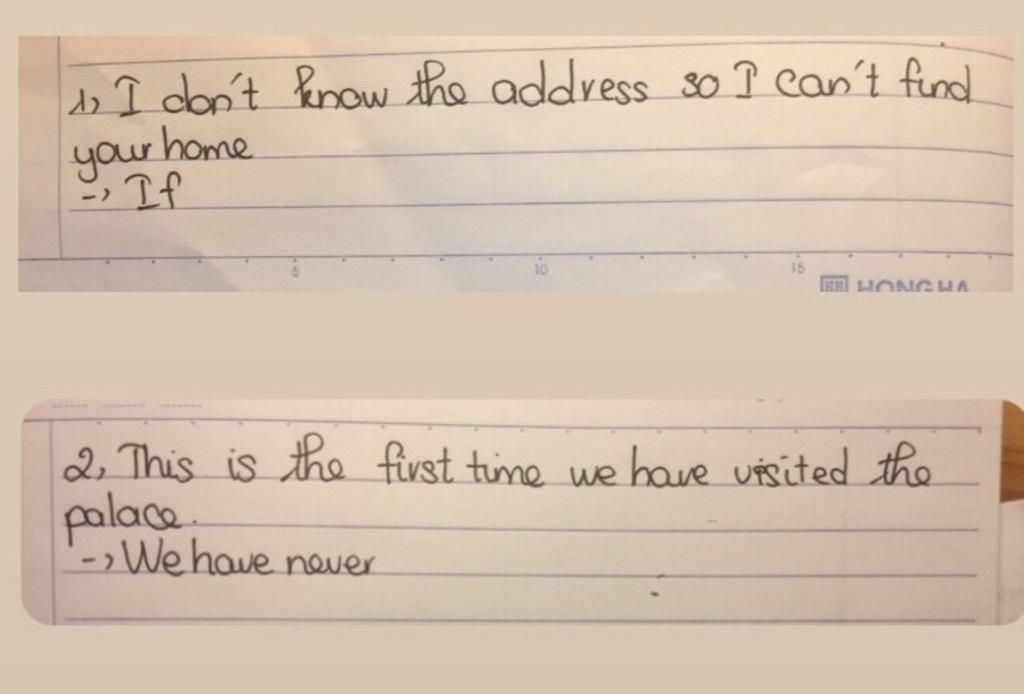 1, I don't know the address so I can't find
your home
-> If
5 10 15
HONG HA
2, This is the first time we have visited the
palace.
-> We have never